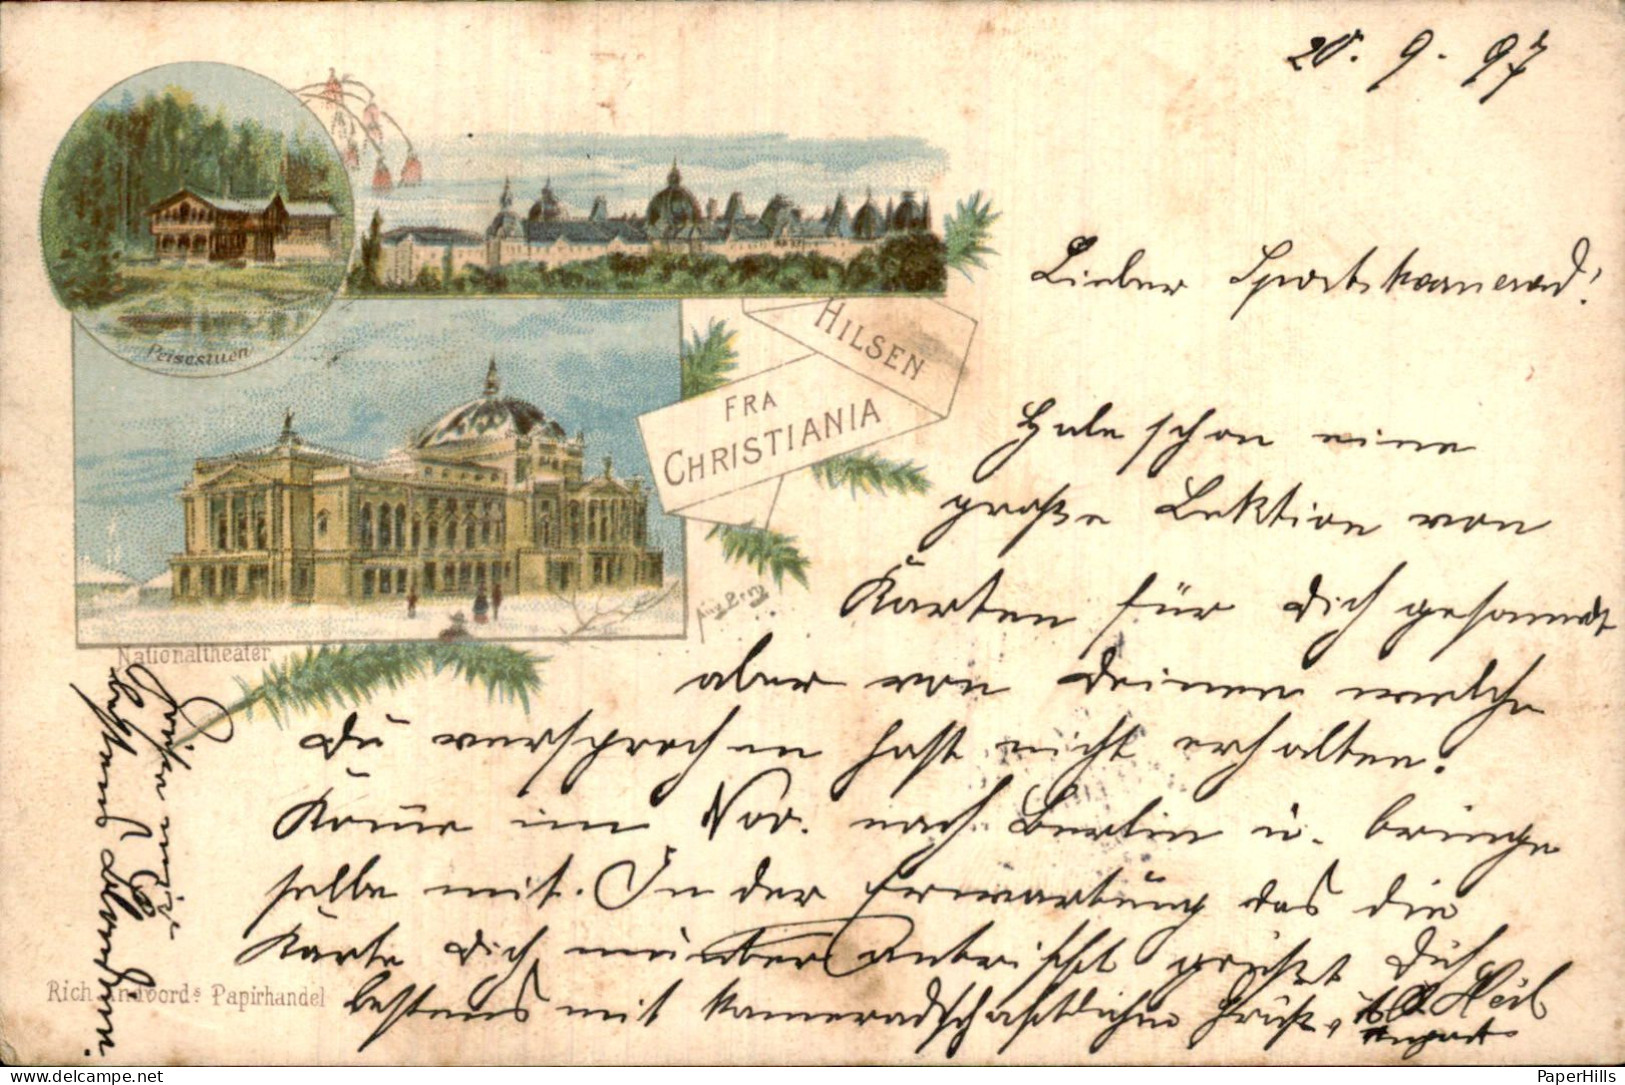 20. 9. 97
Peisestuen
HILSEN
FRA
CHRISTIANIA
Nationaltheater
Lieber Sportskamerad!
Habe schon eine
große Lektion von
Karten für Dich gesandt
aber von Deinen welche
Du versprochen hast nicht erhalten.
Komme im Nov. nach Berlin u. bringe
selbe mit. In der Erwartung das die
Karte Dich munter antrifft grüßt Dich
bestens mit kameradschaftlichen Gruß "All Heil"
Rich. Andvord's Papirhandel
delcampe.net
PaperHills